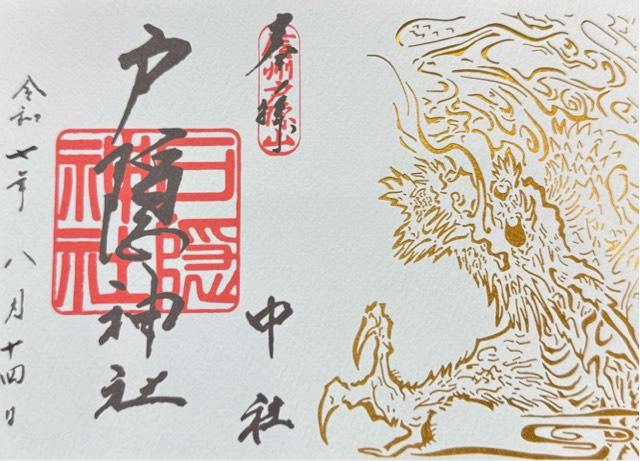 奉拝
信州戸隠山
中社
戸隠神社
戸隠
神社
令和七年 八月十四日